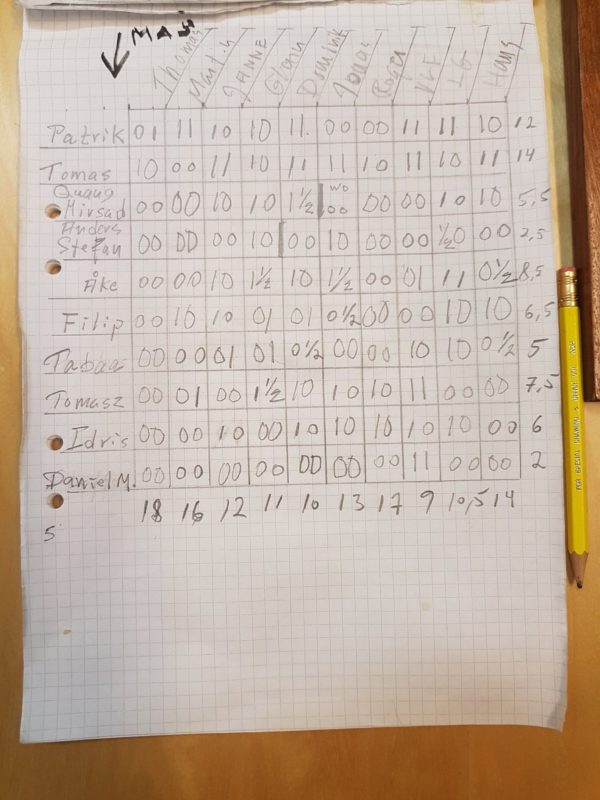 MAJ
Thomas Martin Janne Glenn Dominik Jonas Roger Ulf LG Hans
Patrik 01 11 10 10 11. 00 00 11 11 10 12
Tomas 10 00 11 10 11 11 10 11 10 11 14
Quang
Mirsad 00 00 10 10 1½ wo 00 00 00 10 10 5,5
Anders
Stefan 00 00 00 10 00 10 00 00 ½0 00 2,5
Åke 00 00 10 1½ 10 1½ 00 01 11 0½ 8,5
Filip 00 10 10 01 01 0½ 00 00 10 10 6,5
00 00 01 01 0½ 00 00 10 10 0½ 5
Tomasz 00 01 00 1½ 10 10 10 11 00 00 7,5
Idris 00 00 10 00 10 10 10 10 10 00 6
Daniel M. 00 00 00 00 00 00 00 11 00 00 2
18 16 12 11 10 13 17 9 10,5 14
5